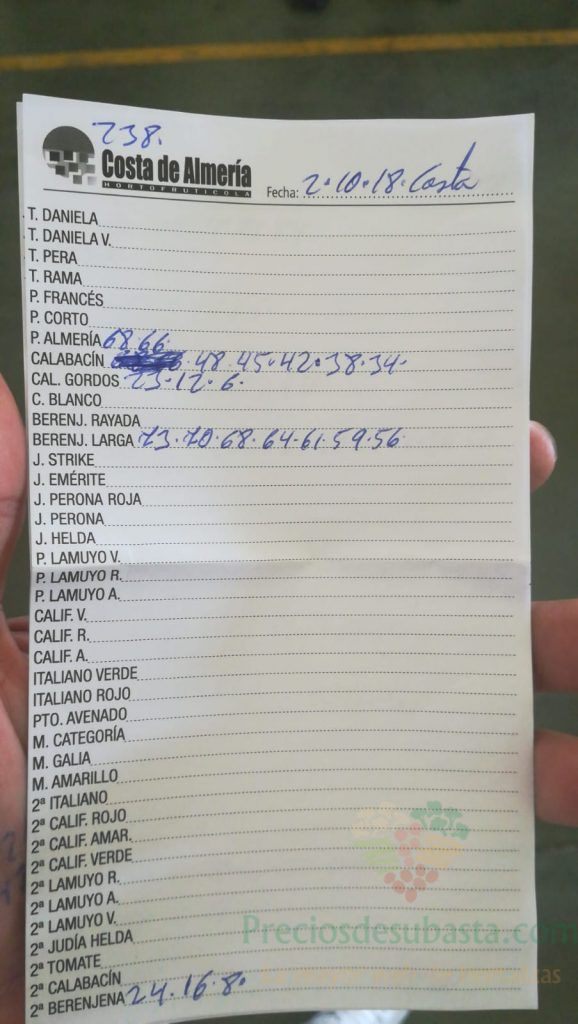 238.
Costa de Almería
HORTOFRUTICOLA
Fecha: 2.10.18. Costa
T. DANIELA
T. DANIELA V.
T. PERA
T. RAMA
P. FRANCÉS
P. CORTO
P. ALMERÍA 68.66.
CALABACÍN 48.45.42.38.34.
CAL. GORDOS 23.12.6.
C. BLANCO
BERENJ. RAYADA
BERENJ. LARGA 73.70.68.64.61.59.56
J. STRIKE
J. EMÉRITE
J. PERONA ROJA
J. PERONA
J. HELDA
P. LAMUYO V.
P. LAMUYO R.
P. LAMUYO A.
CALIF. V.
CALIF. R.
CALIF. A.
ITALIANO VERDE
ITALIANO ROJO
PTO. AVENADO
M. CATEGORÍA
M. GALIA
M. AMARILLO
2ª ITALIANO
2ª CALIF. ROJO
2ª CALIF. AMAR.
2ª CALIF. VERDE
2ª LAMUYO R.
2ª LAMUYO A.
2ª LAMUYO V.
2ª JUDÍA HELDA
2ª TOMATE
2ª CALABACÍN
2ª BERENJENA 24.16.8.
Preciosdesubasta.com